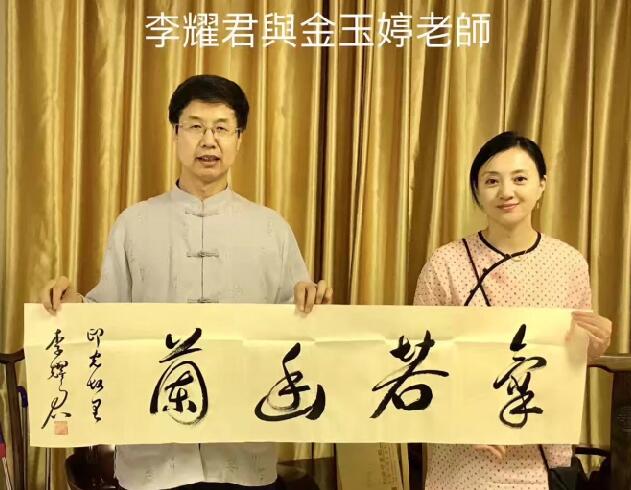 李耀君與金玉婷老師
氣若幽蘭
印光故里
李耀君